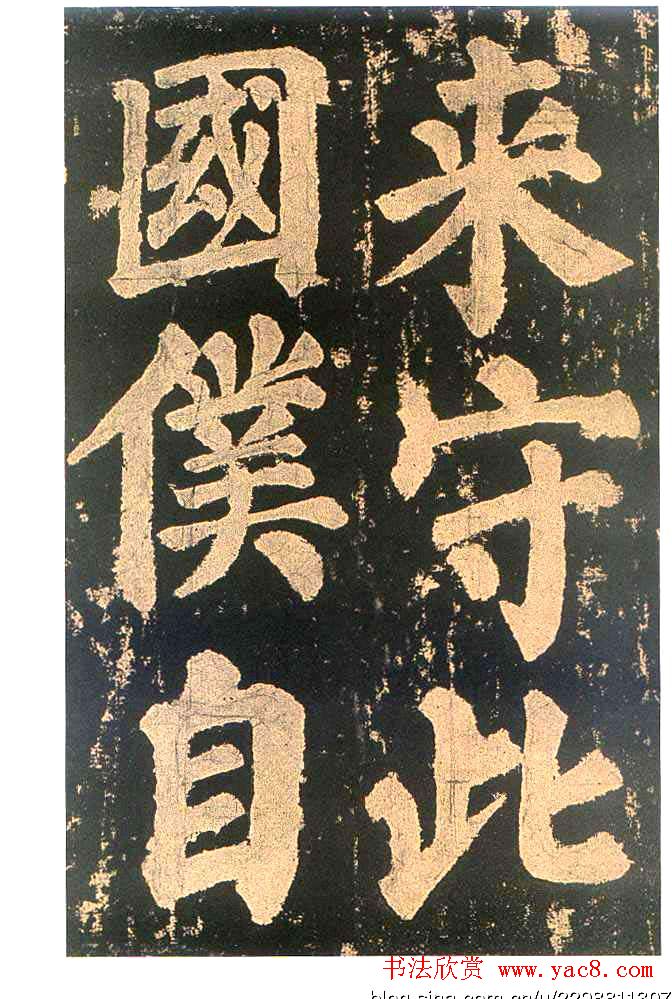 来守此
國僕自
书法欣赏 www.yac8.com